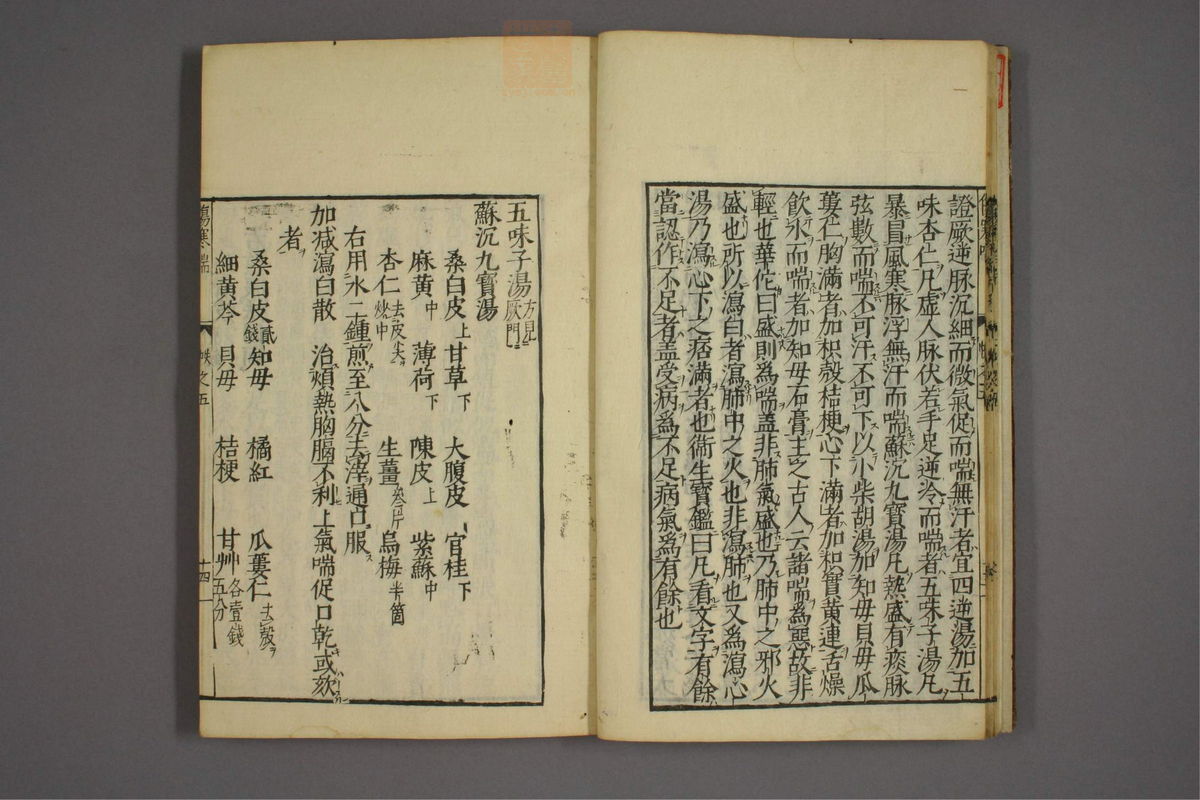 證厥逆脉沉細而微氣促而喘無汗者宜四逆湯加五
味杏仁凡虛人脉伏若手足逆冷而喘者五味子湯凡
暴冒風寒脉浮無汗而喘蘇沉九寳湯凡熱盛有痰脉
弦數而喘不可汗不可下以小柴胡湯加知毋貝毋瓜
蔞仁胸滿者加枳殼桔梗心下滿者加枳實黄連舌燥
飲水而喘者加知毋石膏主之古人云諸喘爲惡故非
輕也華佗曰盛則爲喘盖非肺氣盛也乃肺中之邪火
盛也所以瀉白者瀉肺中之火也非瀉肺也又爲瀉心
湯乃瀉心下之痞滿者也衛生寳鑑曰凡看文字有餘
當認作不足者盖受病爲不足病氣爲有餘也
五味子湯 方見厥門
蘇沉九寳湯
桑白皮 上 甘草 下 大腹皮 官桂 下
麻黄 中 薄荷 下 陳皮 上 紫蘇 中
杏仁 去皮尖炒中 生薑 叁片 烏梅 半箇
右用水二鍾煎至八分去滓通口服
加減瀉白散 治煩熱胸膈不利上氣喘促口乾或欬
者
桑白皮 貳錢 知毋 橘紅 瓜蔞仁 去殼
細黄芩 貝毋 桔梗 甘艸 各壹錢五分
傷寒喘 帙之五 十四